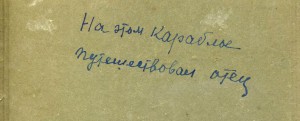 На этом Карабле
путешествовал отец